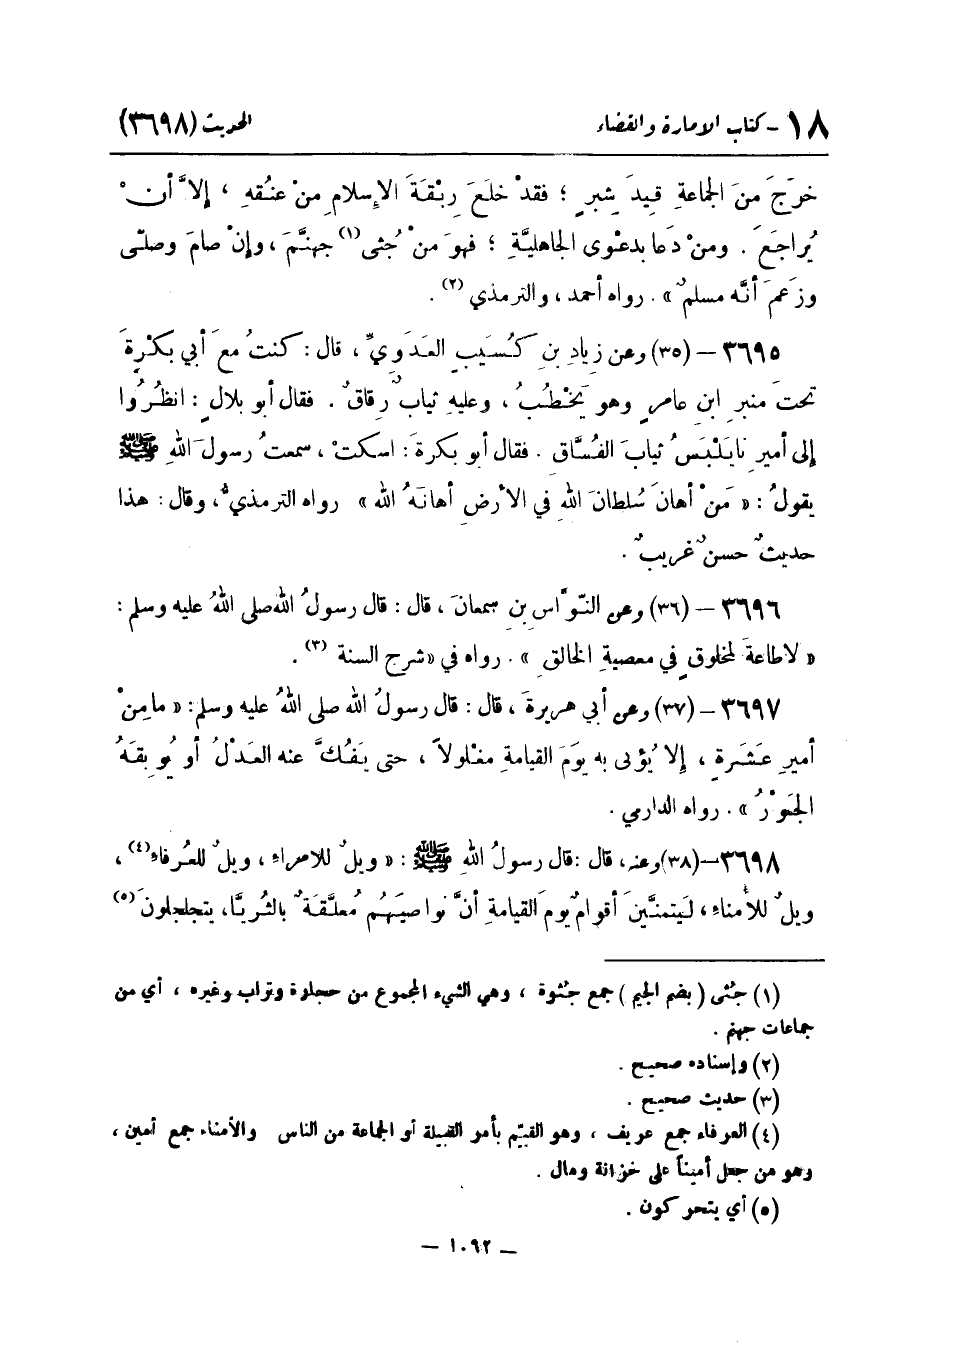 ١٨ - كتاب الامارة والقضاء الحديث (٣٦٩٨)
خرَجَ منَ الجماعةِ قِيدَ شِبرٍ ؛ فقدْ خلَعَ رِبْقةَ الإِسلامِ منْ عنُقهِ ، إِلاَّ أنْ
يُراجَعَ . ومنْ دَعا بدعْوى الجاهليَّةِ ؛ فهوَ منْ جُثى(١) جهنَّمَ ، وإنْ صامَ وصلَّى
وزعَمَ أنَّه مسلمٌ » . رواه أحمد ، والترمذي (٢) .
٣٦٩٥ – (٣٥) وعن زيادِ بنِ كُسَيبٍ العدَوِيِّ ، قال : كنتُ معَ أبي بكْرةَ
تحتَ منبرِ ابنِ عامرٍ وهو يَخْطُبُ ، وعليهِ ثيابٌ رِقاقٌ . فقال أبو بلالٍ : انظُرُوا
إِلى أميرِنا يَلْبَسُ ثيابَ الفُسَّاقِ . فقال أبو بكرةَ : اسكتْ ، سمعتُ رسولَ اللهِ ﷺ
يقولُ : « مَنْ أهانَ سُلطانَ اللهِ في الأرضِ أهانَهُ الله » رواه الترمذيُّ ، وقال : هذا
حديثٌ حسنٌ غريبٌ .
٣٦٩٦ – (٣٦) وعن النَّوَّاسِ بنِ سمعانَ ، قال : قال رسولُ الله صلى اللهُ عليه وسلم :
« لا طاعةَ لمخلوقٍ في معصيةِ الخالقِ » . رواه في «شرح السنة (٣) .
٣٦٩٧ – (٣٧) وعن أبي هريرةَ ، قال : قال رسولُ الله صلى اللهُ عليه وسلم: « ما مِنْ
أميرِ عَشَرةٍ ، إِلا يُؤتى به يومَ القيامةِ مغلولاً ، حتى يَفُكَّ عنه العَدْلُ أو يُوبِقَهُ
الجَوْرُ » . رواه الدارمي .
٣٦٩٨–(٣٨)وعنه، قال :قال رسولُ اللهِ ﷺ : « ويلٌ للأمراءِ ، ويلٌ للعُرفاءِ(٤) ،
ويلٌ للأُمناءِ ، لَيتمنَّينَّ أقوامٌ يومَ القيامةِ أنَّ نواصيَهُم مُعلَّقةٌ بالثُّريَّا، يتجلجلونَ(٥)
(١) جُثى ( بضم الجيم ) جمع جُثوة ، وهي الشيء المجموع من حجارة وتراب وغيره ، أي من
جماعات جهنم .
(٢) وإسناده صحيح .
(٣) حديث صحيح .
(٤) العرفاء جمع عريف ، وهو القيّم بأمر القبيلة أو الجماعة من الناس والأمناء جمع أمين ،
وهو من جعل أميناً على خزانة ومال .
(٥) أي يتحركون .
– ١٠٩٢ –